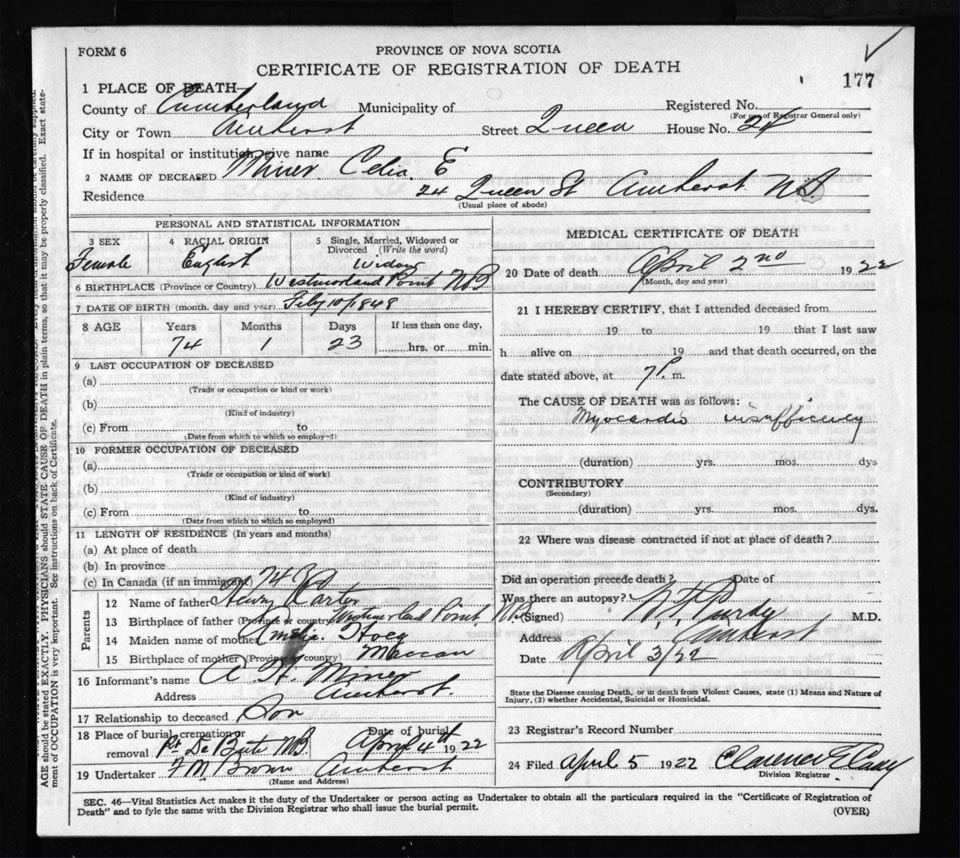 FORM 6
PROVINCE OF NOVA SCOTIA
CERTIFICATE OF REGISTRATION OF DEATH
177
1 PLACE OF DEATH
County of Cumberland Municipality of Registered No.
(For use of Registrar General only)
City or Town Amherst Street Queen House No. 24
If in hospital or institution, give name
2 NAME OF DECEASED Miner Celia E
Residence 24 Queen St Amherst N.S.
(Usual place of abode)
PERSONAL AND STATISTICAL INFORMATION
3 SEX 4 RACIAL ORIGIN 5 Single, Married, Widowed or Divorced (Write the word)
Female English Widow
6 BIRTHPLACE (Province or Country) Westmorland Point N.B
7 DATE OF BIRTH (month, day and year) Feby 10/1848
8 AGE Years Months Days If less than one day,
74 1 23 hrs. or min.
9 LAST OCCUPATION OF DECEASED
(a)
(Trade or occupation or kind or work)
(b)
(Kind of industry)
(c) From to
(Date from which to which so employed)
10 FORMER OCCUPATION OF DECEASED
(a)
(Trade or occupation or kind of work)
(b)
(Kind of industry)
(c) From to
(Date from which to which so employed)
11 LENGTH OF RESIDENCE (In years and months)
(a) At place of death
(b) In province
(c) In Canada (if an immigrant) 74
Parents
12 Name of father Henry
13 Birthplace of father (Province or country) Westmorland Point N.B.
14 Maiden name of mother Amelia Hoeg
15 Birthplace of mother (Province or country) Maccan
16 Informant's name A. H. Miner
Address Amherst.
17 Relationship to deceased Son
18 Place of burial, cremation or removal Pt De Bute N.B. Date of burial April 4th 1922
19 Undertaker F M Brown Amherst
(Name and Address)
MEDICAL CERTIFICATE OF DEATH
20 Date of death April 2nd 1922
(Month, day and year)
21 I HEREBY CERTIFY, that I attended deceased from
19 to 19 that I last saw
h alive on 19 and that death occurred, on the
date stated above, at 7 P. m.
The CAUSE OF DEATH was as follows:
Myocardio insufficiency
(duration) yrs. mos. dys
CONTRIBUTORY
(Secondary)
(duration) yrs. mos. dys.
22 Where was disease contracted if not at place of death?
Did an operation precede death? Date of
Was there an autopsy?
(Signed) Purdy M.D.
Address Amherst
Date April 3/22
State the Disease causing Death, or in death from Violent Causes, state (1) Means and Nature of
Injury, (2) whether Accidental, Suicidal or Homicidal.
23 Registrar's Record Number
24 Filed April 5 1922 Clarence
Division Registrar
SEC. 46—Vital Statistics Act makes it the duty of the Undertaker or person acting as Undertaker to obtain all the particulars required in the "Certificate of Registration of
Death" and to fyle the same with the Division Registrar who shall issue the burial permit.
(OVER)
AGE should be stated EXACTLY. PHYSICIANS should STATE CAUSE OF DEATH in plain terms, so that it may be properly classified. Exact state-
ment of OCCUPATION is very important. See instructions on back of Certificate.